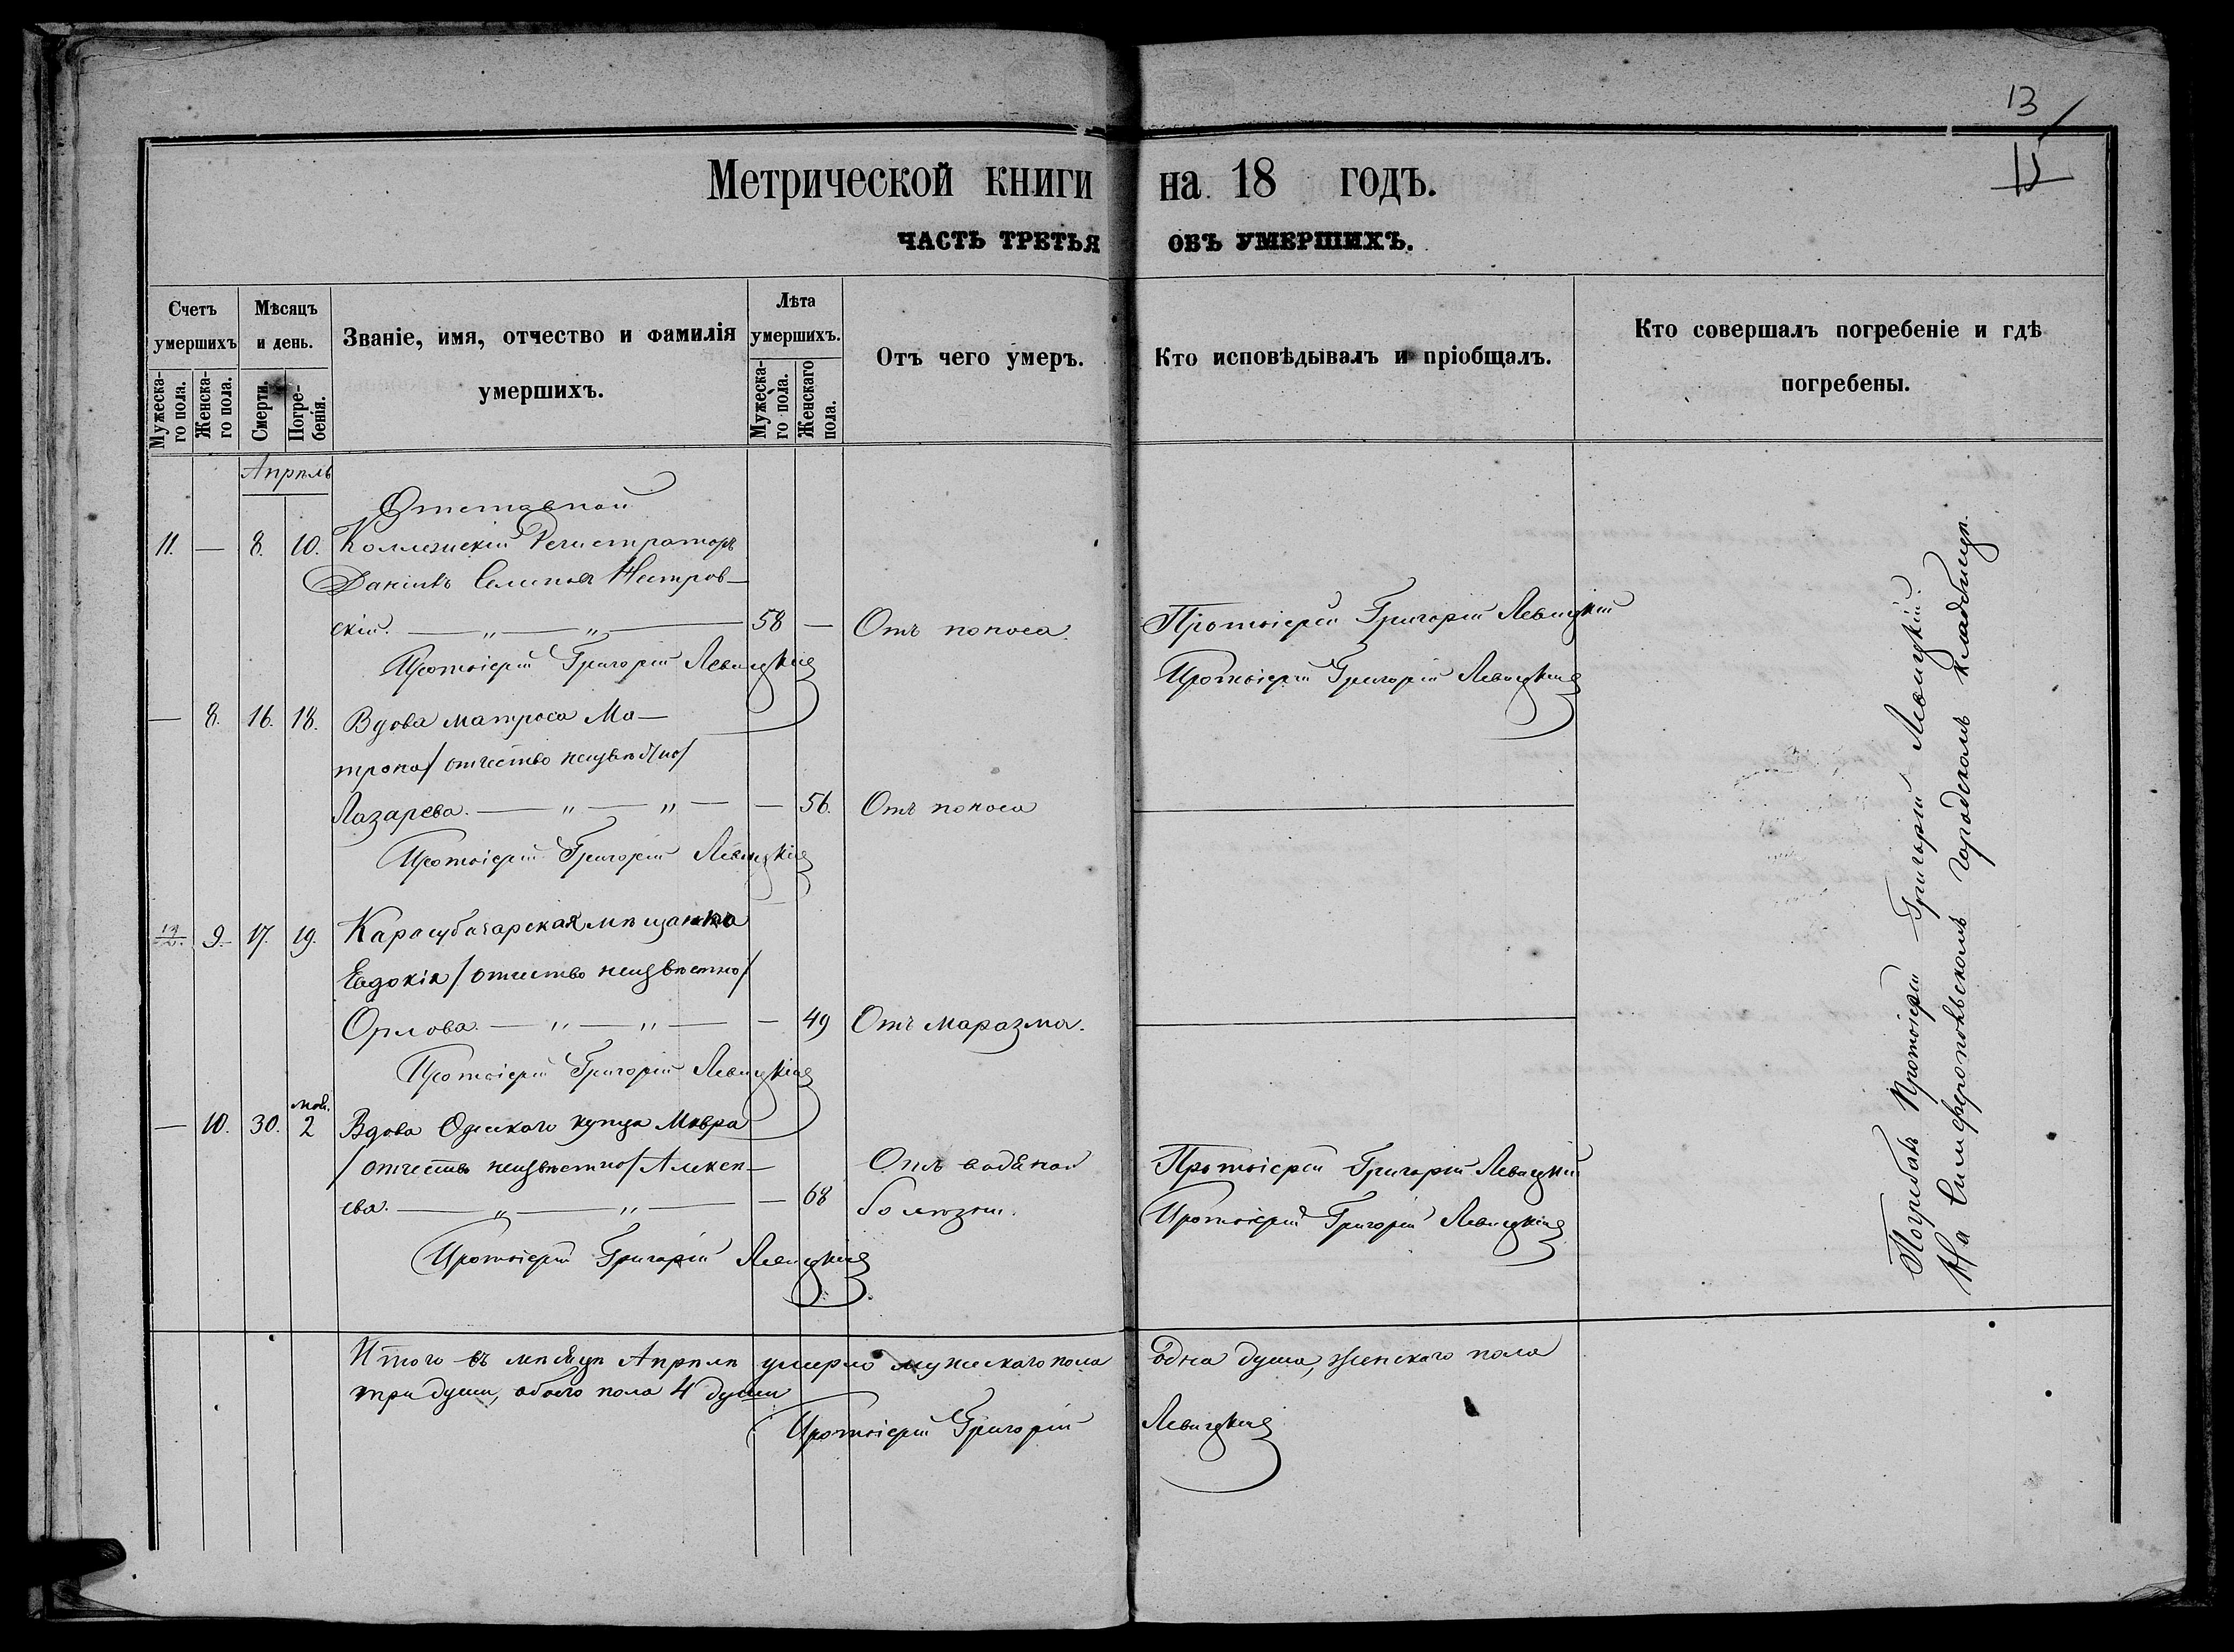 13
15
Метрической книги на 18 годъ.
ЧАСТЬ ТРЕТЬЯ ОБЪ УМЕРШИХЪ.
Счетъ умершихъ
Мѣсяцъ и день.
Званіе, имя, отчество и фамилія умершихъ.
Лѣта умершихъ.
Отъ чего умеръ.
Кто исповѣдывалъ и пріобщалъ.
Кто совершалъ погребеніе и гдѣ погребены.
Мужеска-го пола.
Женска-го пола.
Смерти.
Погре-бенія.
Мужеска-го пола.
Женскаго пола.
Апрѣль
Отставной
11. — 8. 10. Коллежскій Регистраторъ
Даніилъ Нестров-
скій. — „ — „ — 58 — Отъ поноса. Протоіерей Григорій Левицкій
Протоіерей Григорій Левицкій Протоіерей Григорій Левицкій
— 8. 16. 18. Вдова матроса Ма-
трона /отчество неизвѣстно/
Лазарева. — „ — „ — — 56. Отъ поноса
Протоіерей Григорій Левицкій
9. 17. 19. Карасубазарская мѣщанка
Евдокія /отчество неизвѣстно/
Орлова. — „ — „ — — 49 Отъ маразма.
Протоіерей Григорій Левицкій
— 10. 30. маи. 2 Вдова Одескаго купца Мавра
/отчество неизвѣстно/ Алексѣ- Отъ водяной Протоіерей Григорій Левицкій
ева. — „ — „ — — 68 болѣзни. Протоіерей Григорій Левицкій
Протоіерей Григорій Левицкій
Погребалъ Протоіерей Григорій Левицкій.
На Симферопольскомъ городскомъ кладбищѣ.
Итого въ мѣсяцѣ Апрѣлѣ умерло мужескаго пола одна душа, женскаго пола
три души, обоего пола 4 души
Протоіерей Григорій Левицкій